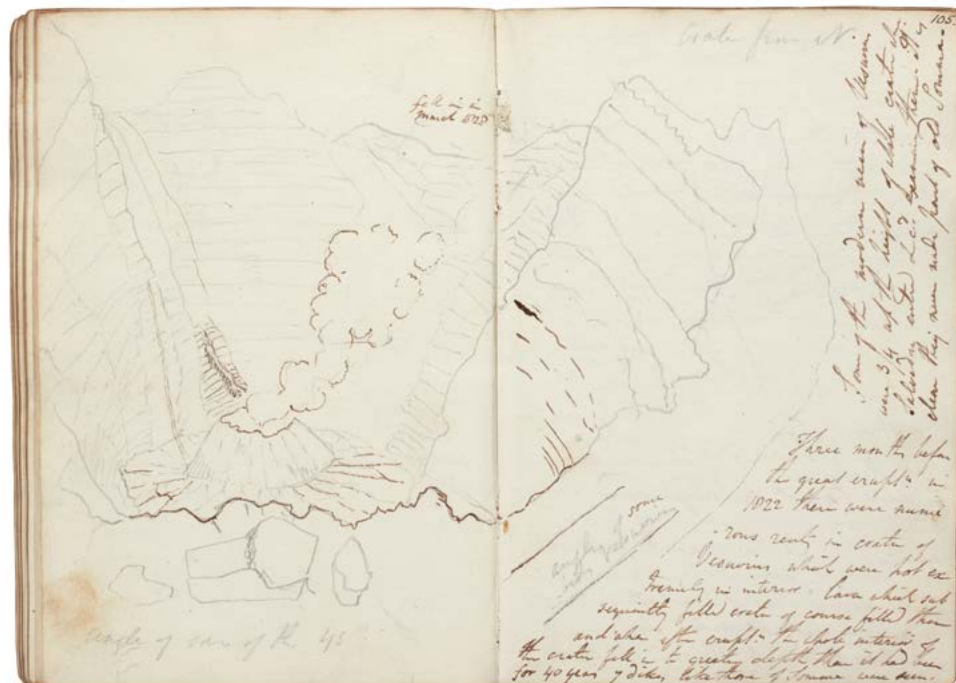 105.
Crater from N.
fell in in
March 1828
Some of the modern veins of Vesuvius
were 3/4 of the height of whole crater when
Salvadory and Ld examined them. It is
clear they never made part of old Somma.
Three months before
the great erupt.n in
1822 there were nume
-rous rents in crater of
Vesuvius which were hot ex
tremely in interior. Lava which sub
sequently filled crater of course filled them
and when after erupt.n the whole interior of
the crater fell in to greater depth than it had been
for 40 years 7 dikes like those of Somma were seen.
some
angle
angle of cone of the 45